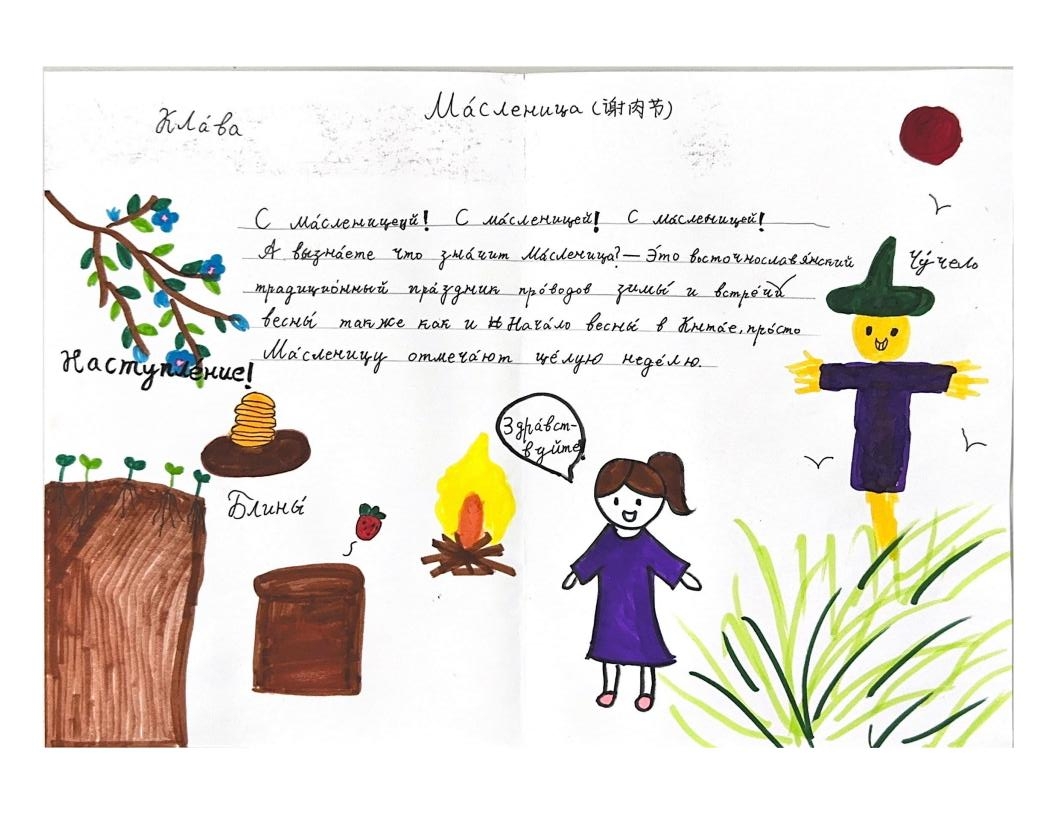 Кла́ва
Ма́сленица (谢肉节)
С ма́сленицецй! С ма́сленицей! С ма́сленицей!
А вызна́ете что зна́чит Ма́сленица? — Э́то восточнославя́нский
традицио́нный пра́здник про́водов зимы́ и встре́чи
весны́ также как и Нача́ло весны́ в Китае, про́сто
Ма́сленицу отмеча́ют це́лую неде́лю.
Чу́чело
Наступле́ние!
Здра́вст-
вуйте!
Блины́